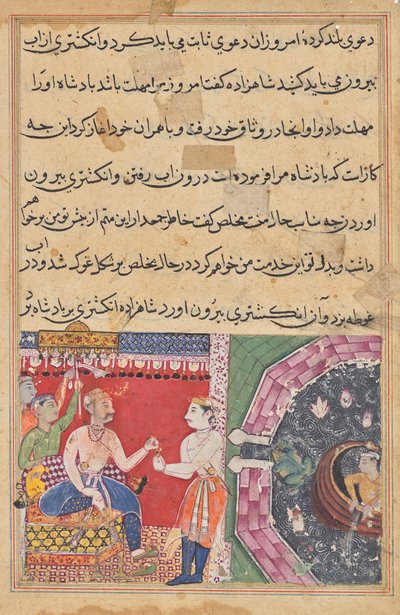 دعوی بلند کرده امروز ان دعوی ثابت می باید کرد و انکشتری از اب
بیرون می باید کشید شاهزاده کفت امروز مرا مهلت باشد بادشاه اورا
مهلت داد و او انجا در وثاق خود رفت و با همران خود اغاز کرد این چه
کارات که بادشاه مرا فرموده است درون اب رفتن و انکشتری بیرون
اورد نچه مناسب حال منست مخلص کفت خاطر جمعدار این مهم از پیش تو من بر خواهم
داشت و بدل تو این خدمت من خواهم کرد در حال مخلص بر شکل غوک شد و در اب
غوطه بزد و آن انکشتری بیرون اورد شاهزاده انکشتری بر بادشاه برد